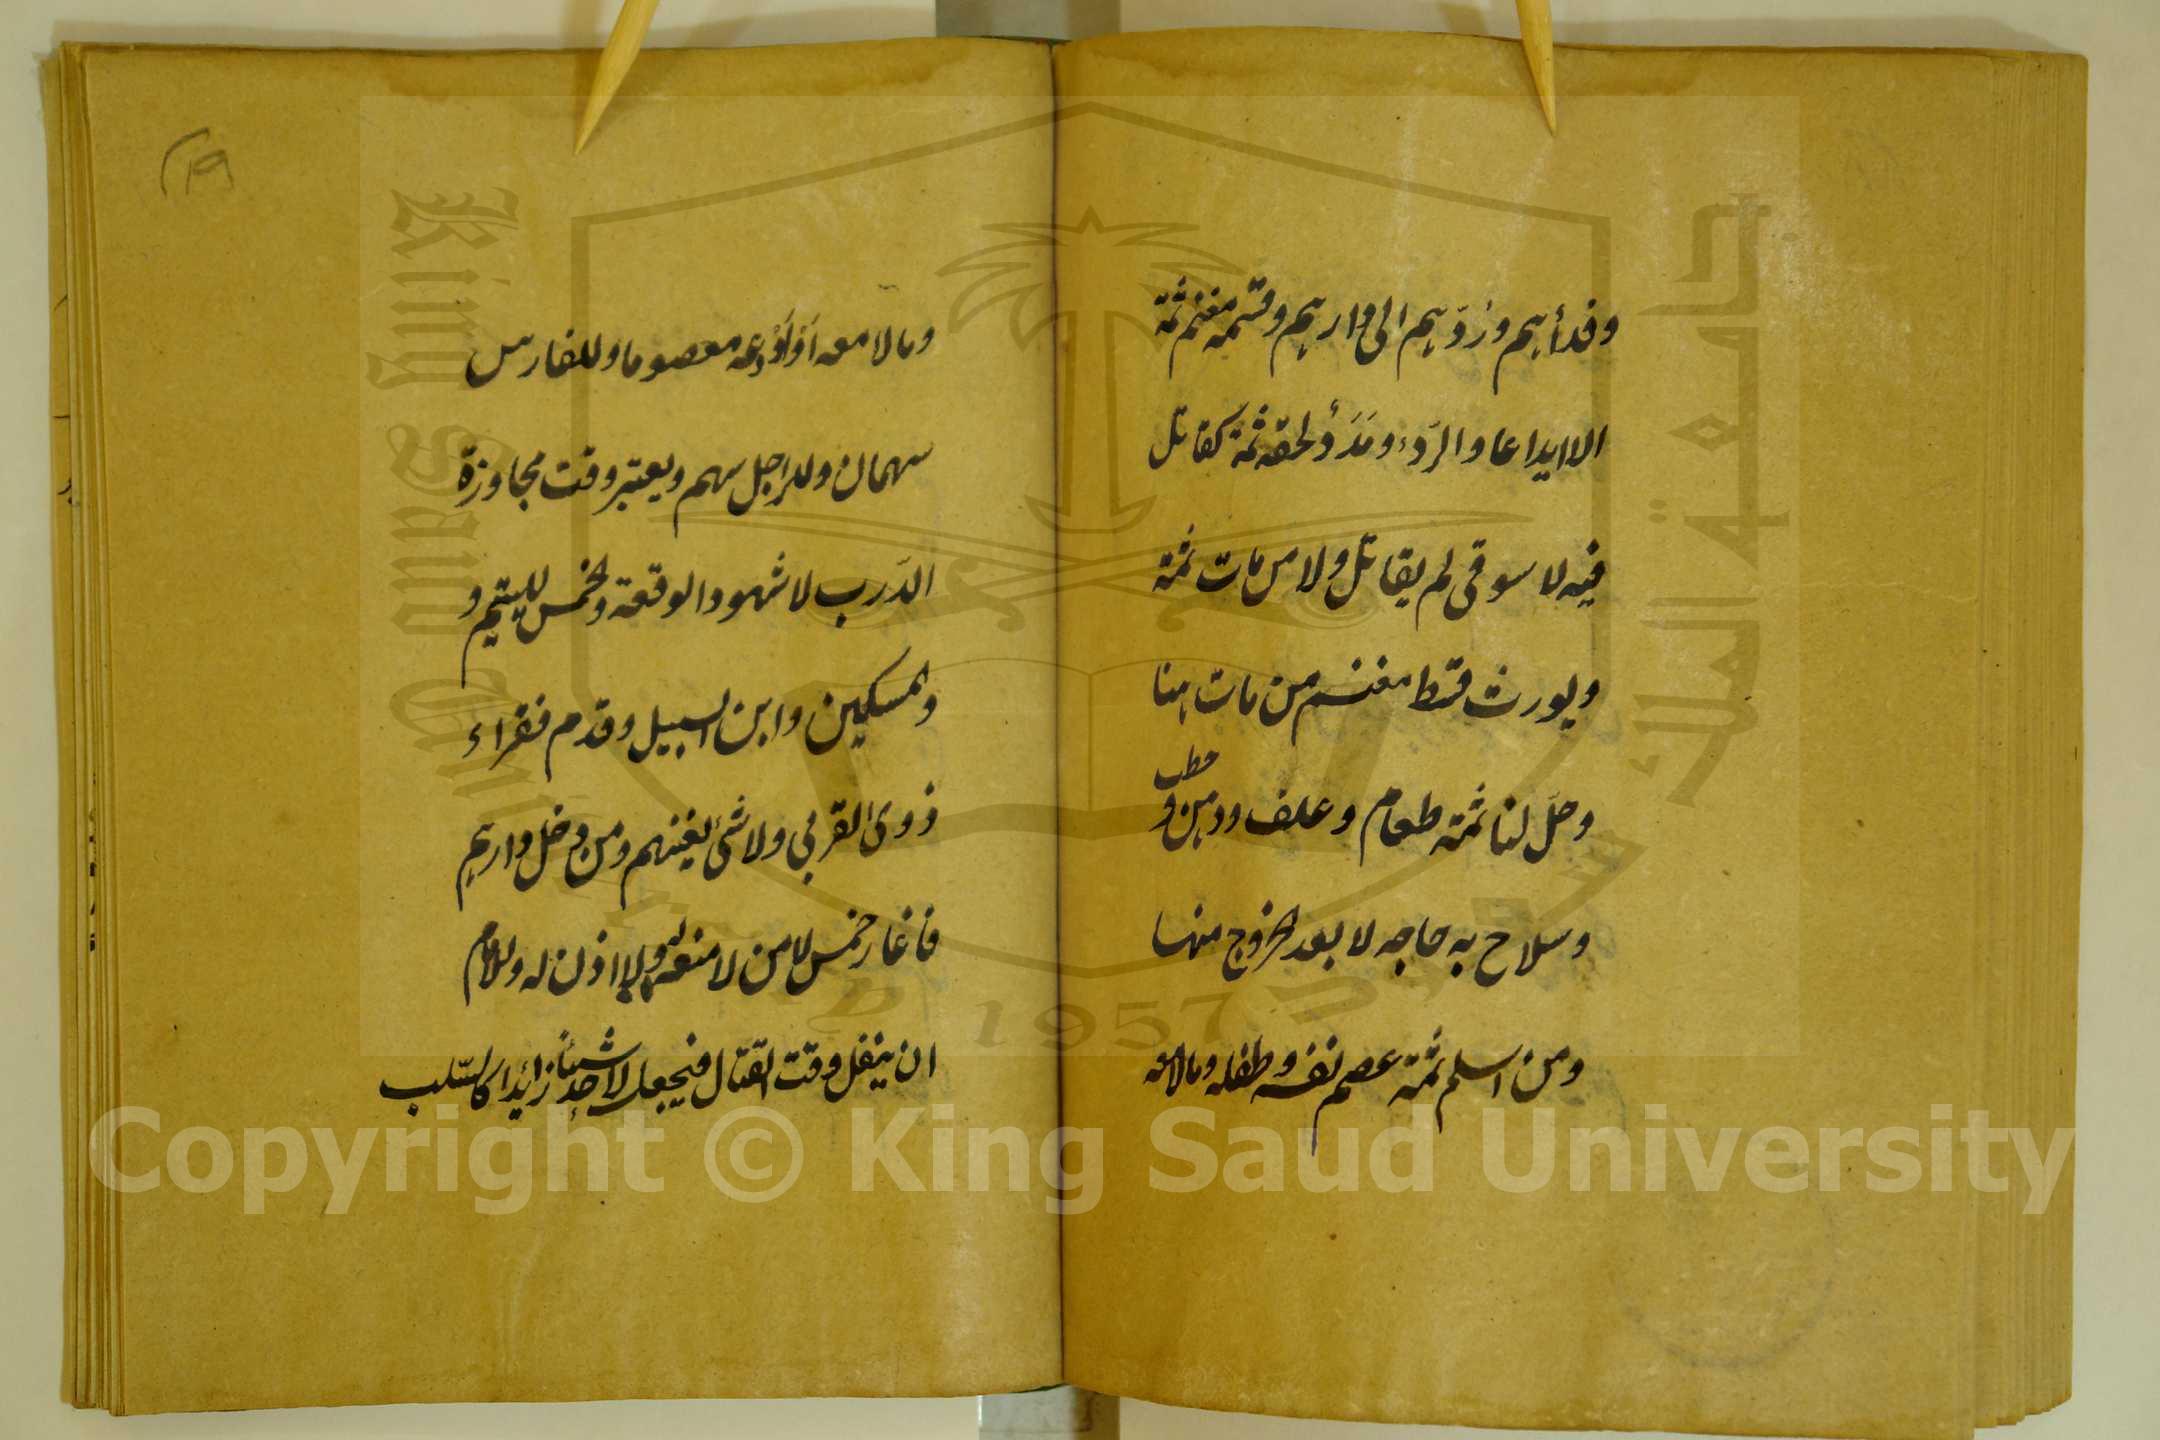 وفدأهم وردّهم الى دارهم وقسمة مغنم ثمة
الا ايداعا والرّدء ومَدَدٌ لحقه ثمة كمقاتل
فيه لا سوقي لم يقاتل ولا من مات ثمة
ويورث قسط مغنم من مات هنا
وحلّ لنا ثمة طعام وعلف ودهن و حطب
وسلاح به حاجه لا بعد الخروج منها
ومن اسلم ثمة عصم نفسه وطفله ومالا معه
ومالا معه اَوْ اَوْدَعه معصوما وللفارس
سهمان وللراجل سهم ويعتبر وقت مجاوزة
الدّرب لا شهود الوقعة والخمس لليتيم و
والمسكين وابن السبيل وقدم فقراء
ذوى القربى ولا شئ لغنيهم ومن دخل دارهم
فاغار خمس لا من لا منعة له ولا اذن له وللامام
ان ينفل وقت القتال فيجعل لاحد شيئا زائدا كالسّلب
١٩
King Saud University
جامعة الملك
1957
Copyright © King Saud University